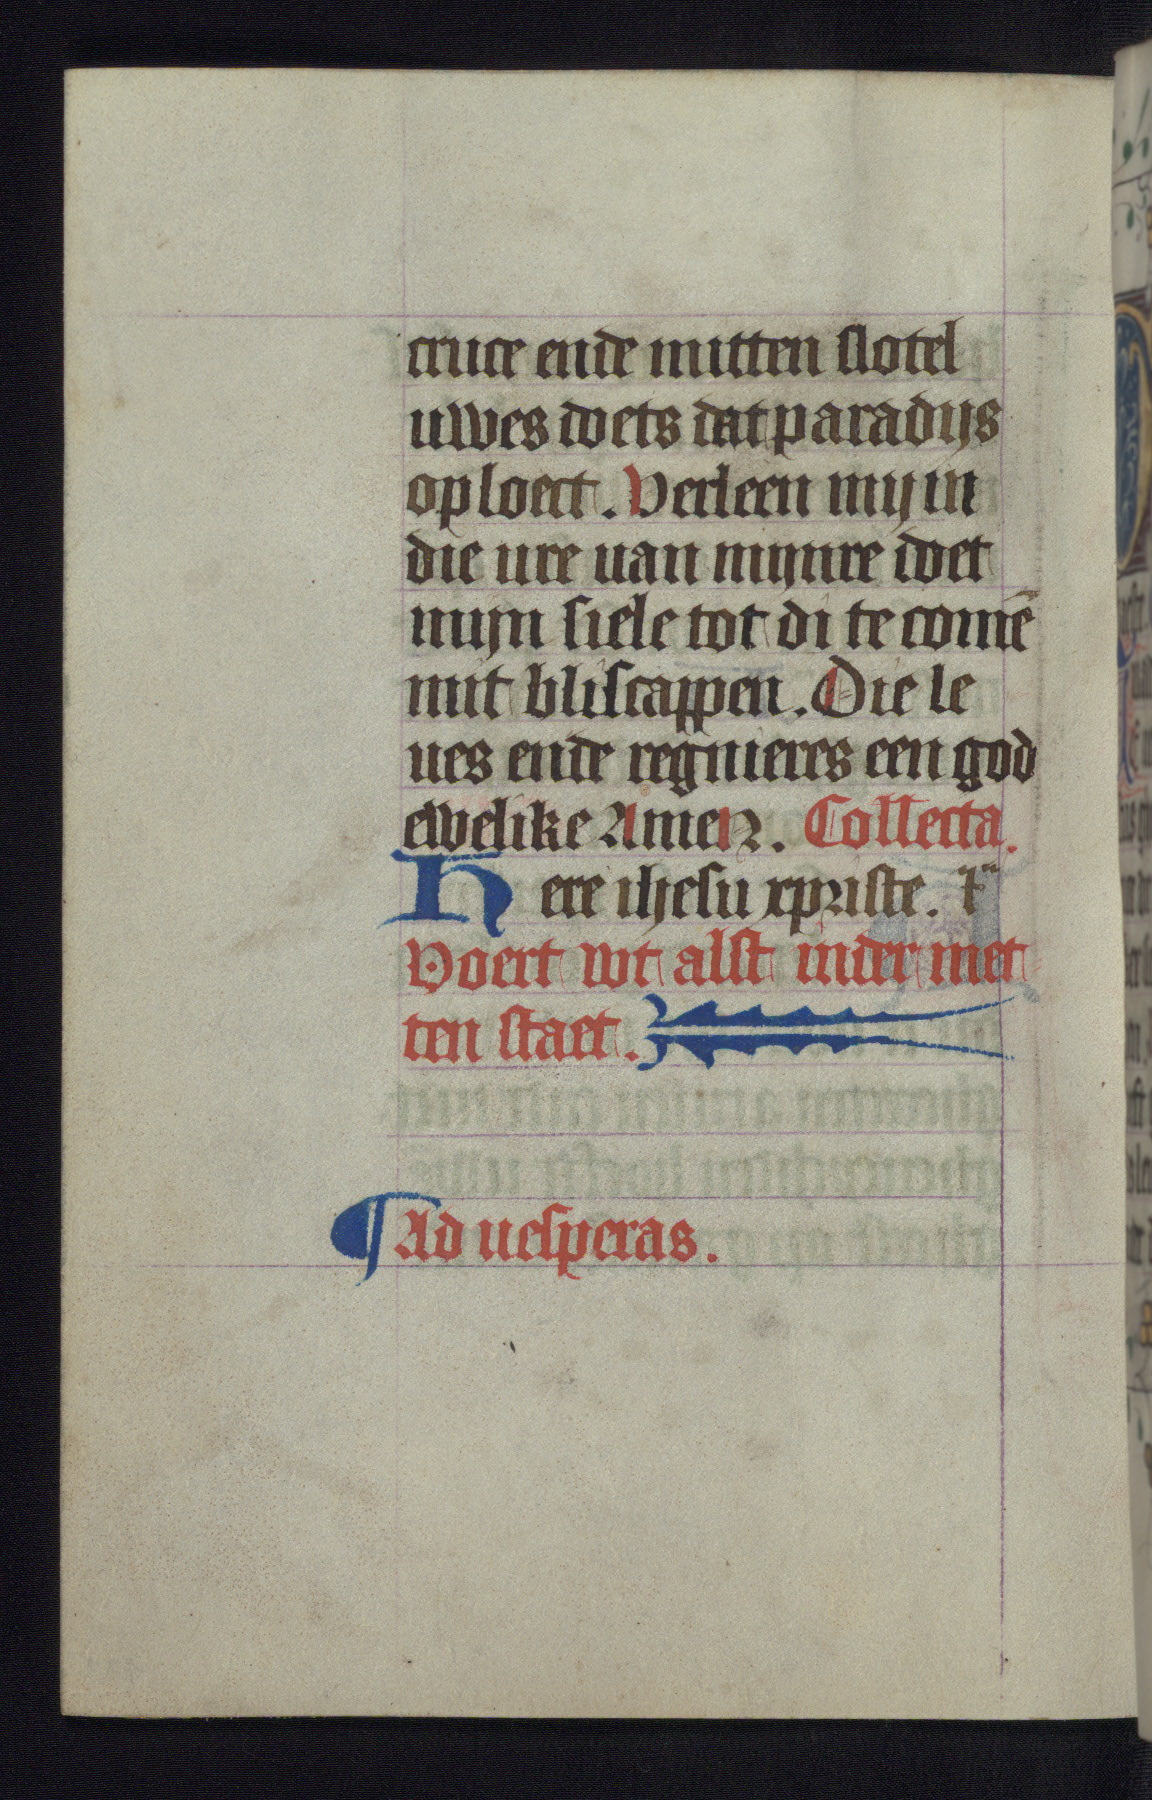 cruce ende mitten slotel
uwes doets dat paradijs
oploect. Verleen mij in
die ure uan mijnre doet
mijn siele tot di te comē
mit bliscappen. Die le
ues ende regnieres een god
ewelike Amen. Collecta.
Here ihesu xpriste.
Voert wt alst inder met
ten staet.
Ad uesperas.